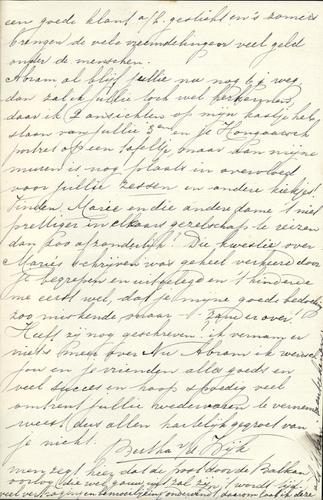 een goede klant a/h. gesticht en 's zomers
brengen de vele vreemdelingen veel geld
onder de menschen.
Abram al blijf jullie nu nog lg weg
dan zal ik jullie toch wel herkennen,
daar ik 2 ansichten op mijn kastje heb
staan van jullie 3en en je Hongaarsch
portret op een tafeltje, maar aan mijne
muren is nog plaats in overvloed
voor jullie zessen en andere kiekjes!
Vinden Marie en die andere dame 't niet
prettiger in elkaars gezelschap te reizen
dan zoo afzonderlijk? Die kwestie over
Marie's schrijven was geheel verkeerd door
je begrepen en uitgelegd en 't hinderde
me eerst wel, dat je mijne goede bedoeling
zoo miskende maar
Heeft zij nog geschreven? ik vernam er
niets meer over. Nu Abram ik wensch
jou en je vrienden alle goeds en
veel succes en hoop spoedig veel
omtrent jullie wedervaren te vernemen
weest dus allen hartelijk gegroet van
je nicht.
Bertha v. d. Wijk
men zegt hier dat de post door de Balkan
oorlog (die wel gauw uit zal zijn) wordt
veel vertraging en